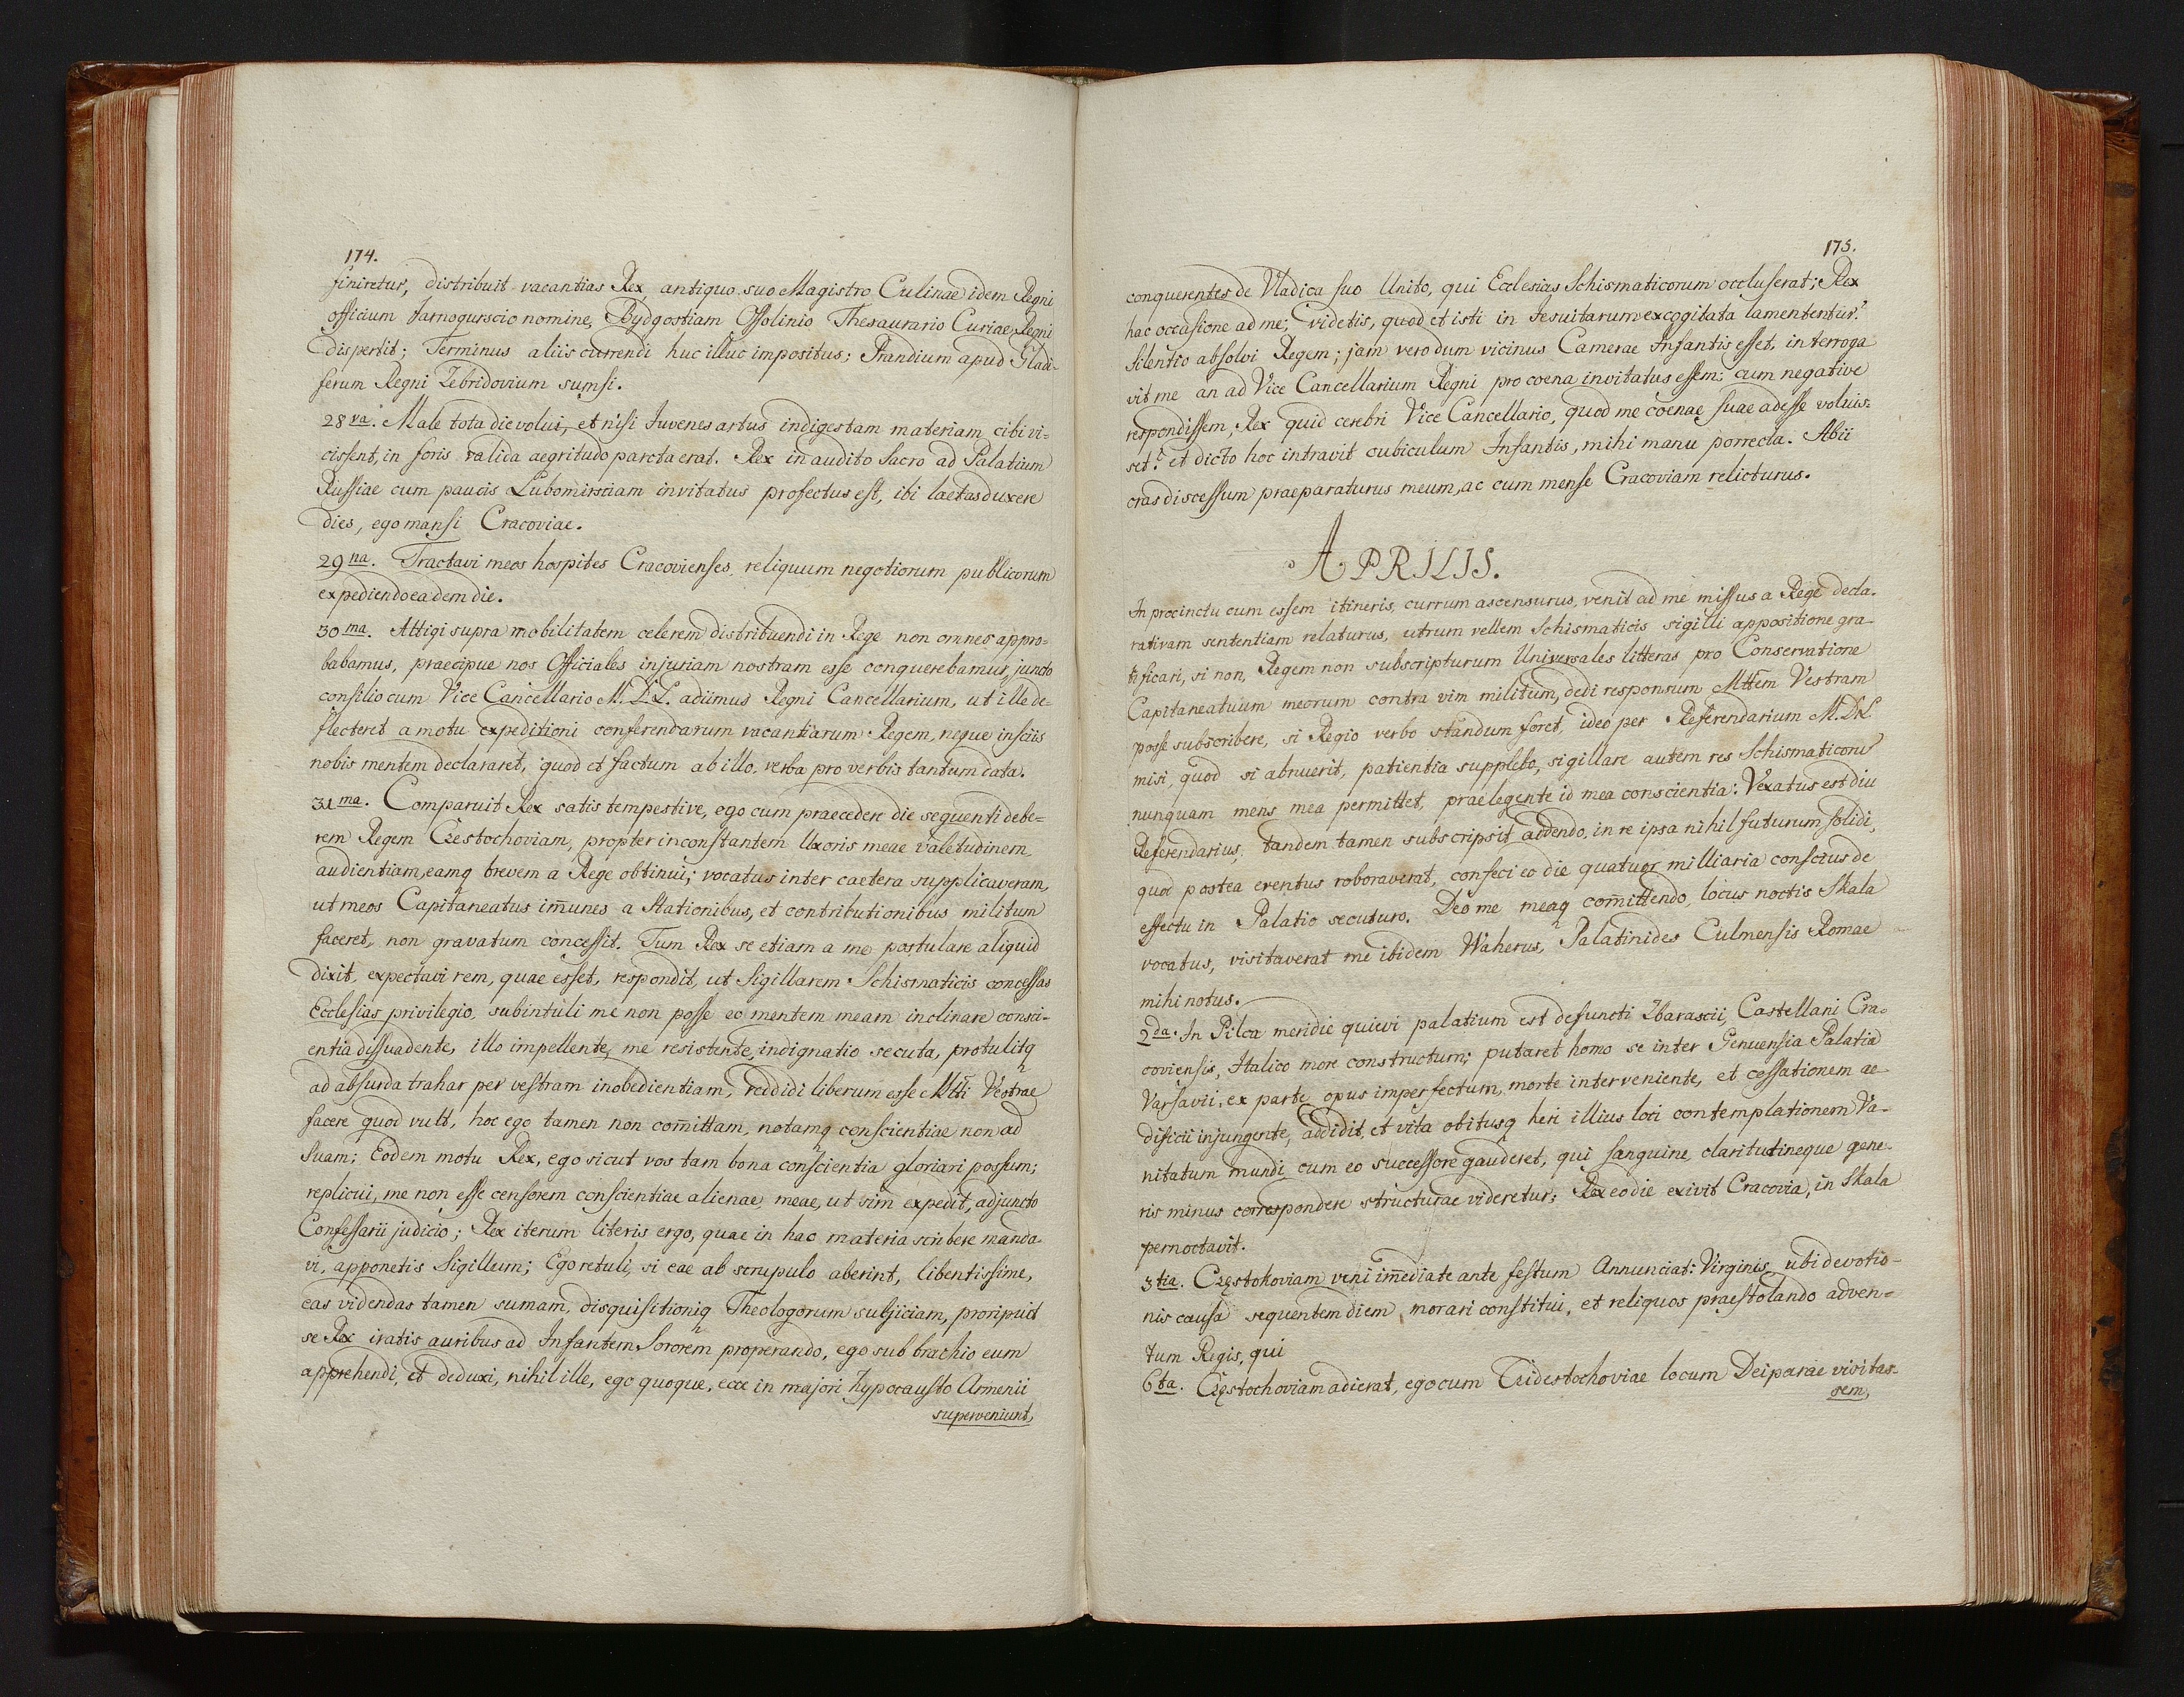 174.
finiretur, distribuit vacantias Rex, antiquo suo Magistro Culinae idem Regni
officium Tarnogurscio nomine, Bydgostiam Ossolinio Thesaurario Curiae Regni
dispertit; Terminus aliis currendi huc illuc impositus; Prandium apud Gladi-
ferum Regni Zebridovium sumsi.
28va. Male tota die volui, et nisi Juvenes artus indigestam materiam cibi vi=
cissent, in foris valida aegritudo parata erat. Rex inaudito Sacro ad Palatium
Russiae cum paucis Lubomirsciam invitatus profectus est, ibi laetas duxere
dies, ego mansi Cracoviae.
29na. Tractavi meos hospites Cracovienses, reliquum negotiorum publicorum
expediendo eadem die.
30ma. Attigi supra mobilitatem celerem distribuendi in Rege non omnes appro=
babamus, praecipue nos Officiales injuriam nostram esse conquerebamur, juncto
consilio cum Vice Cancellario M.D.L. adiimus Regni Cancellarium, ut ille de=
flecteret a motu expeditioni conferendarum vacantiarum Regem, neque insciis
nobis mentem declararet, quod et factum ab illo, verba pro verbis tantum data.
31ma. Comparuit Rex satis tempestive, ego cum praecedere die sequenti debe=
rem Regem Czestochoviam, propter inconstantem Uxoris meae valetudinem,
audientiam, eamq brevem a Rege obtinui; vocatus inter caetera supplicaveram,
ut meos Capitaneatus im̄unes a Stationibus, et contributionibus militum
faceret, non gravatum concessit. Tum Rex se etiam a me postulare aliquid
dixit, expectavi rem, quae esset, respondit, ut Sigillarem Schismaticis concessas
Ecclesias privilegio, subintuli me non posse eo mentem meam inclinare consci-
entia dissuadente, illo impellente, me resistente, indignatio secuta, protulitq
ad absurda trahar per vestram inobedientiam, reddidi liberum esse Mtti Vestrae
facere quod vult, hoc ego tamen non com̄ittam, notamq conscientiae non ad
Suam; Eodem motu Rex, ego sicut vos tam bona conscientia gloriari possum;
replicui, me non esse censorem conscientiae alienae, meae, ut sim expedit, adjuncto
Confessarii judicio; Rex iterum literis ergo, quae in hac materia scribere manda-
vi, apponetis Sigillum; Ego retuli, si eae ab scrupulo aberint, libentissime,
eas videndas tamen sumam, disquisitioniq Theologorum subjiciam, proripuit
se Rex iratis auribus ad Infantem Sororem properando, ego sub brachio eum
apprehendi, et deduxi, nihil ille, ego quoque, ecce in majori hypocausto Armenii
superveniunt,
175.
conquerentes de Vladica suo Unito, qui Ecclesias Schismaticorum occluserat; Rex
hac occasione ad me; videtis, quod et isti in Jesuitarum excogitata lamententur?
Silentio absolvi Regem; jam vero dum vicinus Camerae Infantis esset, interroga
vit me an ad Vice Cancellarium Regni pro coena invitatus essem; cum negative
respondissem, Rex quid cerebri Vice Cancellario, quod me coenae suae adesse voluis-
set? et dicto hoc intravit cubiculum Infantis, mihi manu porrecta. Abii
cras discessum praeparaturus meum, ac cum mense Cracoviam relicturus.
APRILIS.
In procinctu cum essem itineris, currum ascensurus, venit ad me missus a Rege decla-
rativam sententiam relaturus, utrum vellem Schismaticis sigilli appositione gra-
tificari, si non, Regem non subscripturum Universales litteras pro Conservatione
Capitaneatuum meorum contra vim militum, dedi responsum Mttem Vestram
posse subscribere, si Regio verbo standum foret, ideo per Referendarium M.D.L.
misi, quod si abnuerit, patientia supplebo, sigillare autem res Schismaticorū
nunquam mens mea permittet, praelegente id mea conscientia: Vexatus est diu
Referendarius, tandem tamen subscripsit addendo, in re ipsa nihil futurum solidi,
quod postea eventus roboraverat, confeci eo die quatuor milliaria conscius de
effectu in Palatio secuturo. Deo me meaq com̄ittendo, locus noctis Skala
vocatus, visitaverat me ibidem Waherus, Palatinides Culmensis Romae
mihi notus.
2da. In Pilca meridie quievi palatium est defuncti Zbarascii Castellani Cra-
coviensis, Italico more constructum; putaret homo se inter Genuensia Palatia
Varsavii, ex parte opus imperfectum, morte interveniente, et cessationem ae-
dificii injungente, addidit, et vita obitusq heri illius loci contemplationem Va-
nitatum mundi, cum eo successore gauderet, qui sanguine, claritutineque gene-
ris minus correspondere structurae videretur; Rex eo die exivit Cracovia, in Skala
pernoctavit.
3tia. Częstokoviam veni im̄ediate ante festum Annunciat: Virginis, ubi devotio-
nis causa sequentem diem morari constitui, et reliquos praestolando adven=
tum Regis, qui
6ta. Częstochoviam adierat, ego cum Czidestochoviae locum Deiparae visitas-
sem,